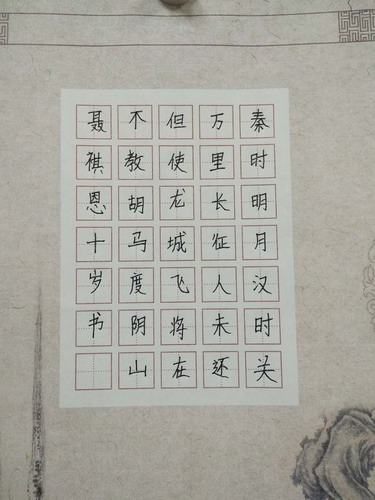 秦时明月汉时关
万里长征人未还
但使龙城飞将在
不教胡马度阴山
聂祺恩十岁书